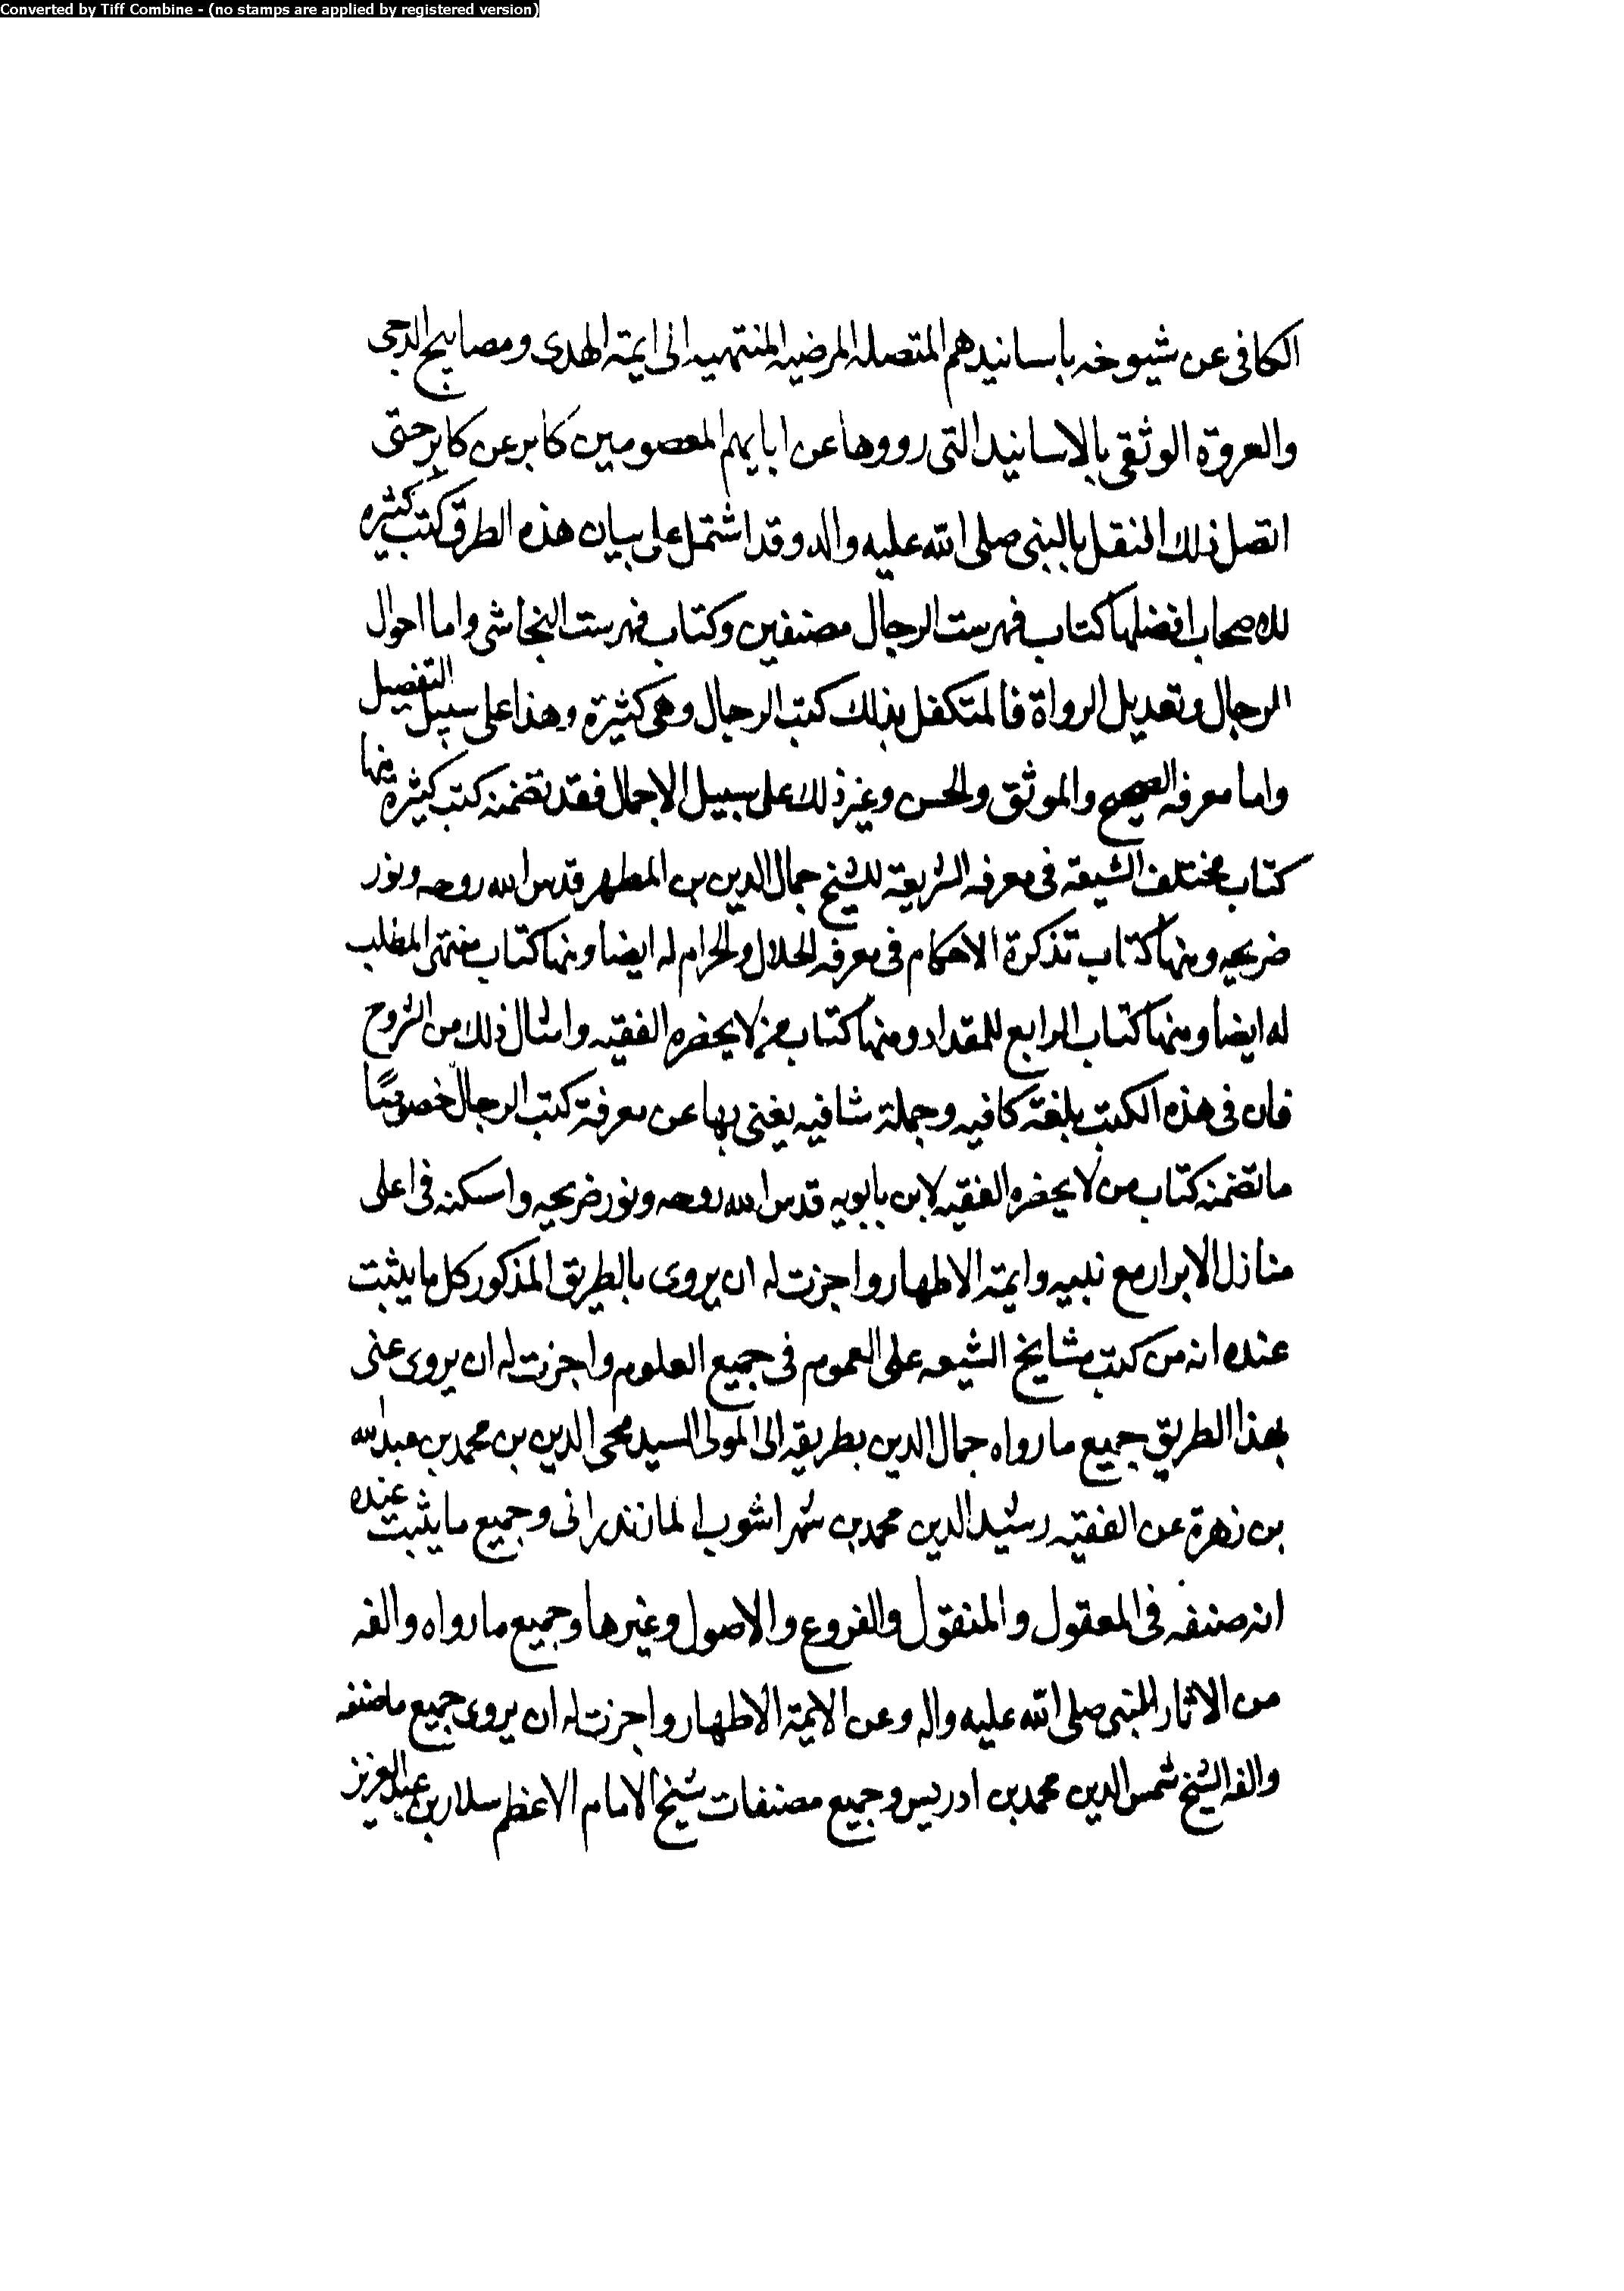 Converted by Tiff Combine - (no stamps are applied by registered version)
الكافى عن شيوخه باسانيدهم المتصله المرضيه المنتهيه الى ايمة الهدى ومصابيح الدجى
والعروة الوثقى بالاسانيد التى رووها عن ابايهم المعصومين كابر عن كابر حتى
اتصل ذلك النقل بالنبى صلى الله عليه واله وقد اشتمل على بيان هذه الطرق كتب كثيره
للاصحاب افضلها كتاب فهرست الرجال مصنفين وكتاب فهرست النجاشى واما احوال
الرجال وتعديل الرواة فالمتكفل بذلك كتب الرجال وهى كثيرة وهذا على سبيل التفصيل
واما معرفه الصحيح والموثق والحسن وغير ذلك على سبيل الاجمال فقد تضمنه كتب كثيرة منها
كتاب مختلف الشيعة فى معرفه الشريعة للشيخ جمال الدين بن المطهر قدس الله روحه ونور
ضريحه ومنها كتاب تذكرة الاحكام فى معرفه الحلال والحرام له ايضا ومنها كتاب منتهى المطلب
له ايضا ومنها كتاب الرابع للمقداد ومنها كتاب من لا يحضره الفقيه وامثال ذلك من الشروح
فان فى هذه الكتب بلغة كافيه وجملة شافيه يغنى بها عن معرفة كتب الرجال خصوصًا
ما تضمنه كتاب من لا يحضره الفقيه لابن بابويه قدس الله روحه ونور ضريحه واسكنه فى اعلى
منازل الابرار مع نبيه وايمته الاطهار واجزت له ان يروى بالطريق المذكور كل ما يثبت
عنده انه من كتب مشايخ الشيعه على العموم فى جميع العلوم واجزت له ان يروى عنى
بهذا الطريق جميع ما رواه جمال الدين بطريقه الى المولى السيد محى الدين بن محمد بن عبد الله
بن زهرة عن الفقيه رشيد الدين محمد بن شهراشوب المازندرانى وجميع ما يثبت عنده
انه صنفه فى المعقول والمنقول والفروع والاصول وغيرها وجميع ما رواه والفه
من الاثار للنبى صلى الله عليه واله وعن الايمة الاطهار واجزت له ان يروى جميع ما صنفه
والفه الشيخ شمس الدين محمد بن ادريس وجميع مصنفات شيخ الامام الاعظم سلار بن عبد العزيز